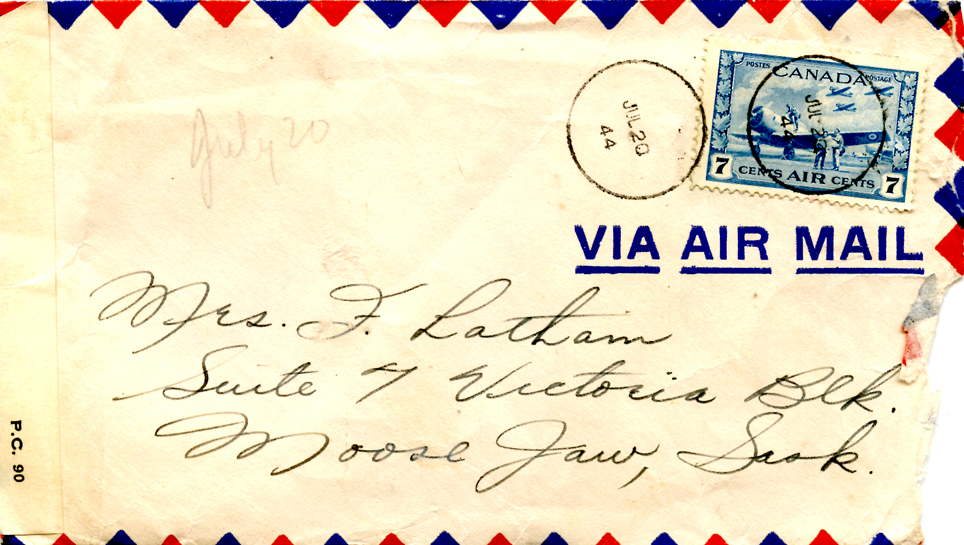 July 20
JUL 20
44
POSTES CANADA POSTAGE
JUL 20
44
7 CENTS AIR CENTS 7
VIA AIR MAIL
Mrs. F. Latham
Suite 7 Victoria Blk.
Moose Jaw, Sask.
P.C. 90